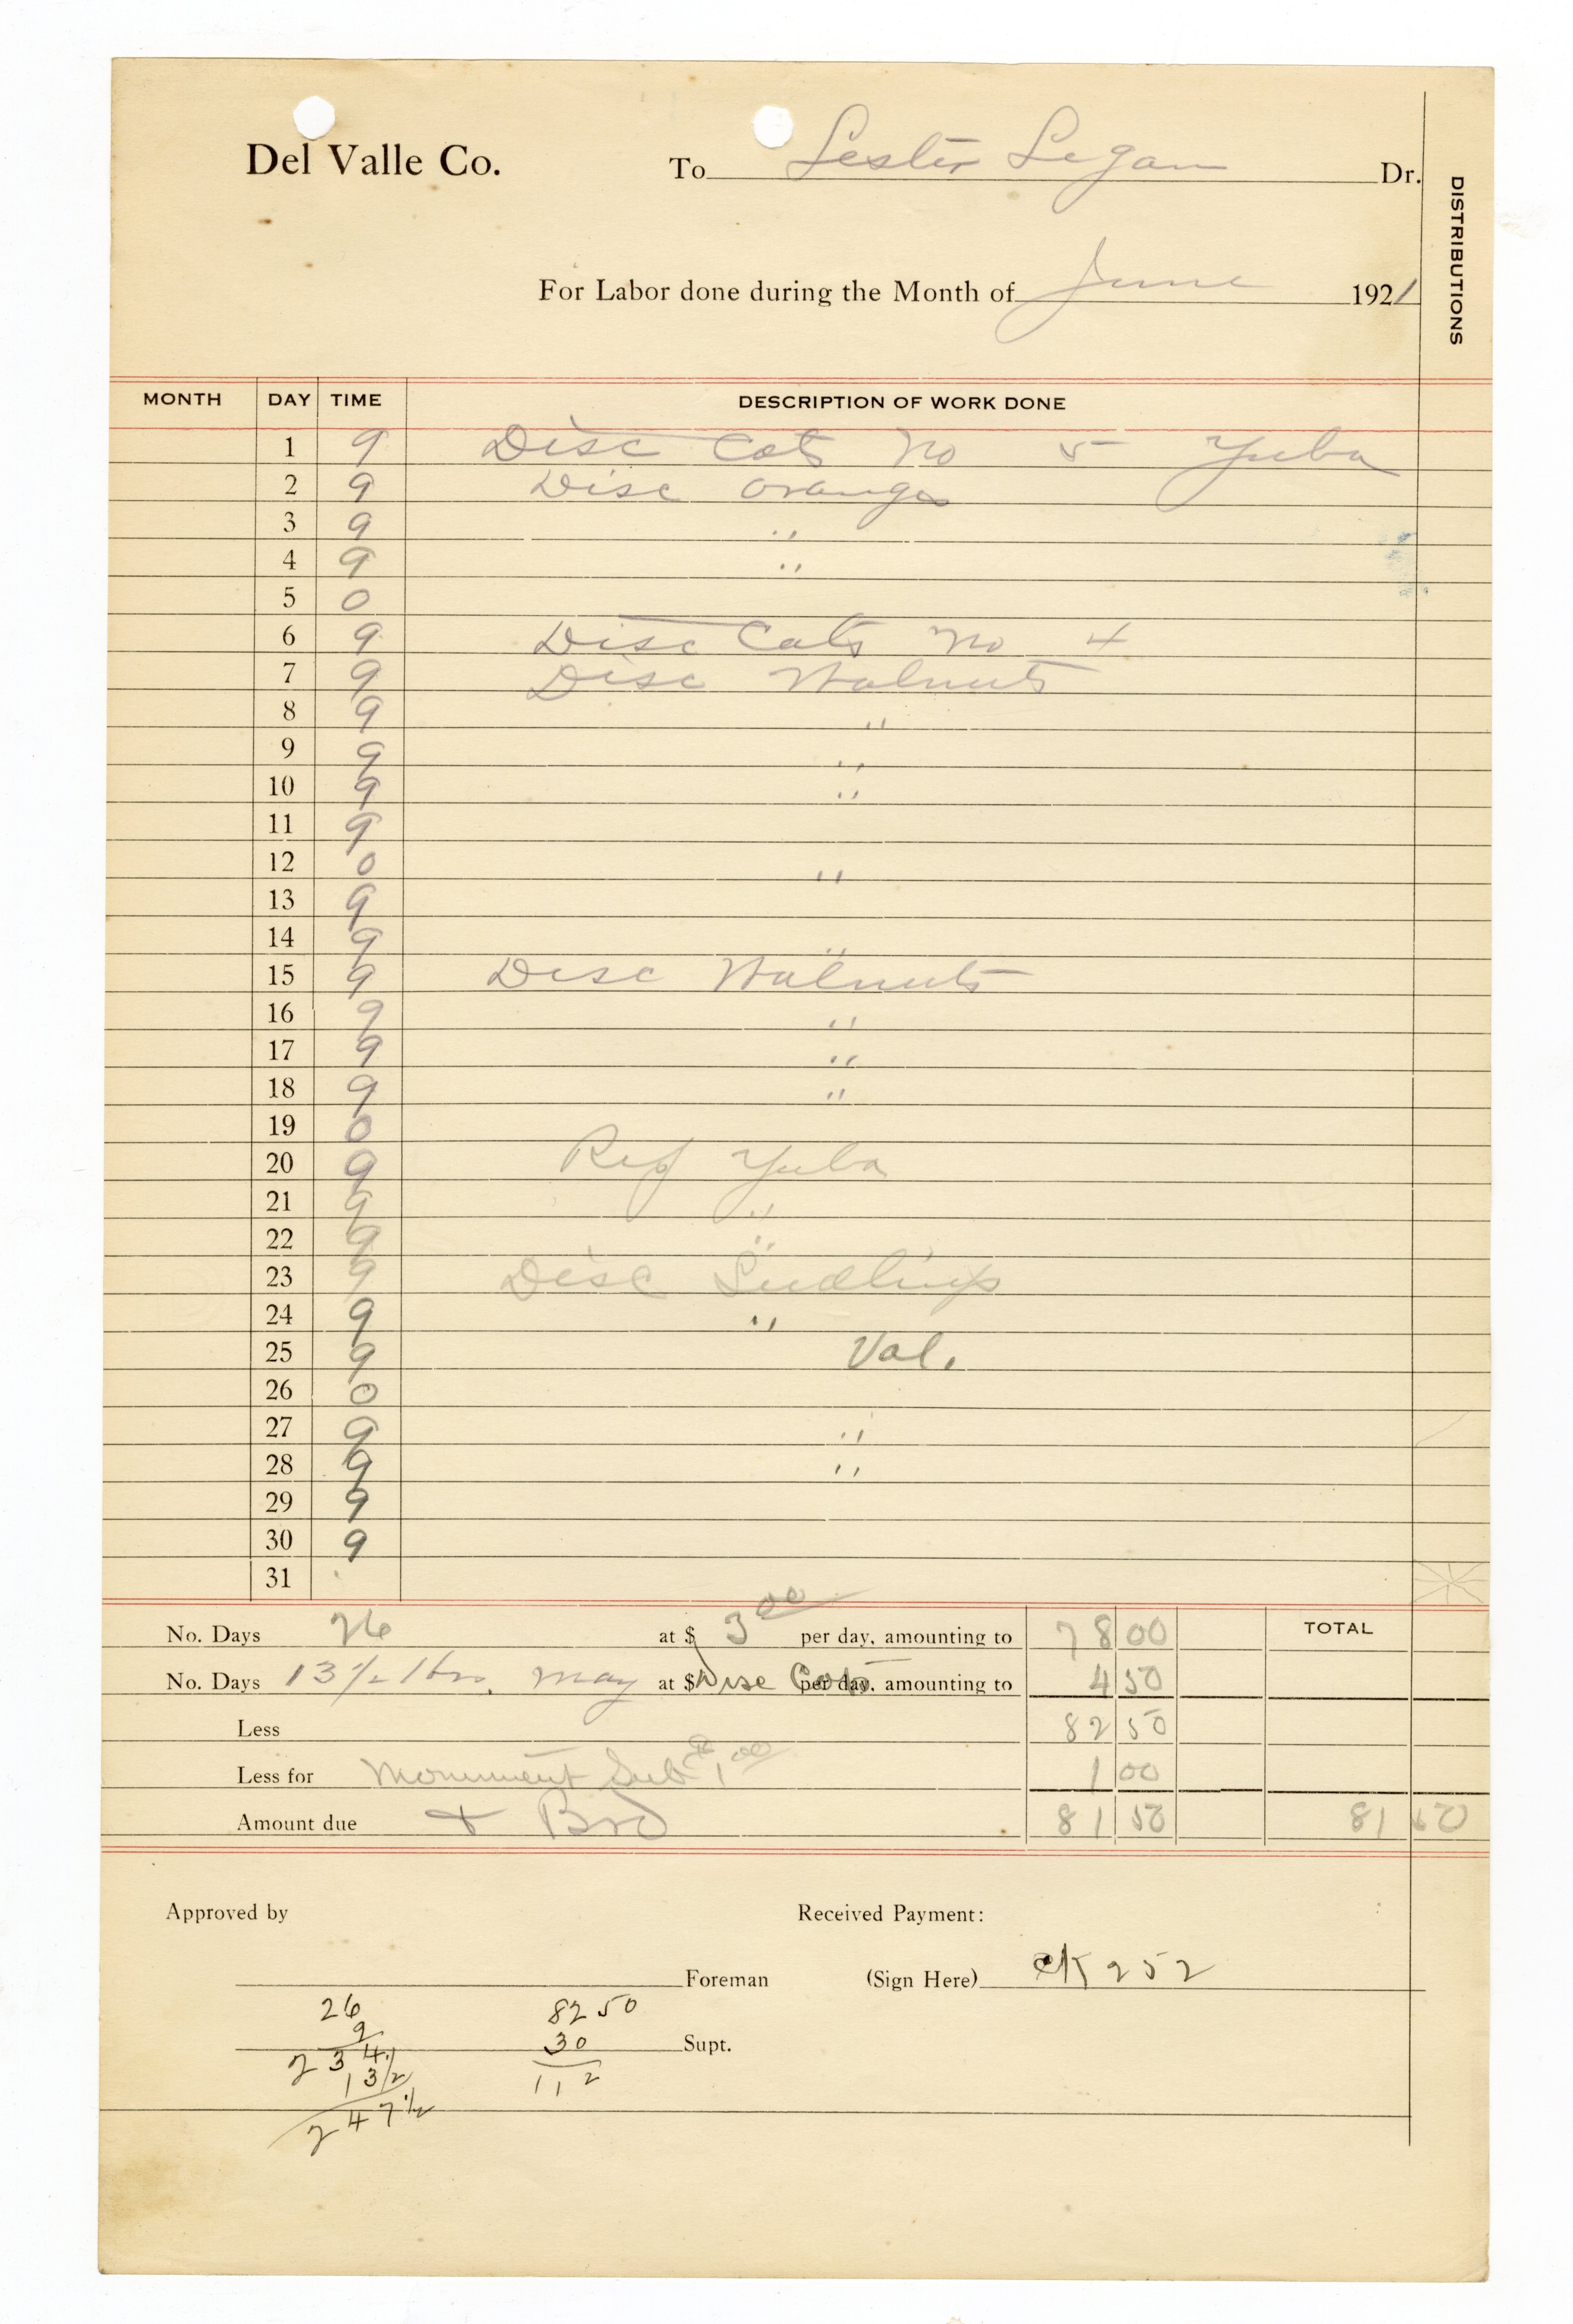 Del Valle Co. To Lester Legan Dr.
DISTRIBUTIONS
For Labor done during the Month of June 1921
MONTH DAY TIME DESCRIPTION OF WORK DONE
1 9 Disc Cots No 5 Yuba
2 9 Disc oranges
3 9 ''
4 9 ''
5 0
6 9 Disc Cots No 4
7 9 Disc Walnuts
8 9 ''
9 9 ''
10 9 ''
11 9
12 0 ''
13 9
14 9 ''
15 9 Disc Walnuts
16 9 ''
17 9 ''
18 9 ''
19 0
20 9 Rep Yuba
21 9 ''
22 9 ''
23 9 Disc Seedlings
24 9 ''
25 9 Val.
26 0
27 9 ''
28 9 ''
29 9
30 9
31
No. Days 26 at $ 3 00 per day, amounting to 78 00 TOTAL
No. Days 13 1/2 Hrs. May at $ Disc Cots per day, amounting to 4 50
Less 82 50
Less for Monument Sub 1 00 1 00
Amount due + Brd 81 50 81 50
Approved by Received Payment:
Foreman (Sign Here) CK 252
26 82 50
9 30 Supt.
234 112
13 1/2
247 1/2